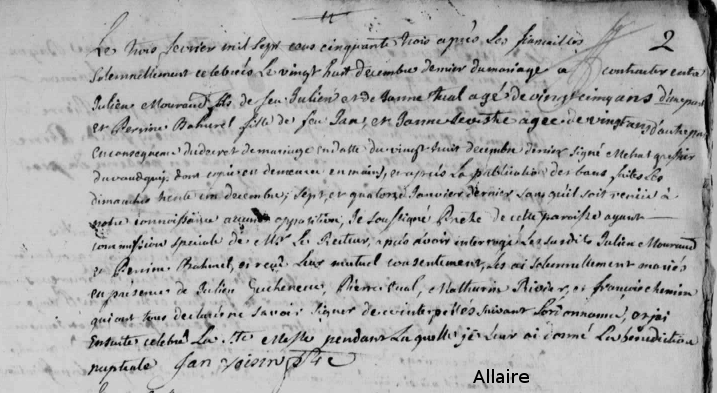 2
Le trois fevrier mil sept cens cinquante trois après les fiancailles
solemnellement celebrées le vingt huit decembre dernier du mariage a contracter entre
Julien Mouraud fils de feu Julien et de Janne Thual agé de vingt cinq ans d'une part
et Perrine Bahurel fille de feu Jan, et Janne agée de vingt d'autre part
en consequence du decret de mariage en datte du vingt huit decembre dernier signé greffier
du dont copie en demeure en main, et après la publication des bans faites les
dimanches trente un decembre, sept, et quatorze Janvier dernier sans qu'il soit venüe à
notre connoissance aucune opposition, Je soussigné Prêtre de cette paroisse ayant
commission speciale de Mr Le Recteur, après avoir interrogé Les susdits Julien Mouraud
et Perrine Bahurel, et reçu Leur mutuel consentement, Les ai solemnellement mariés
en presence de Julien Pierre Mathurin et françois chemin
qui ont tous declarés ne savoir signer de ce interpellés suivant Lordonnance, et j'ai
Ensuite celebré La Ste Messe pendant Laquelle je Leur ai donné La benediction
nuptiale Jan Voisin Ptre
Allaire